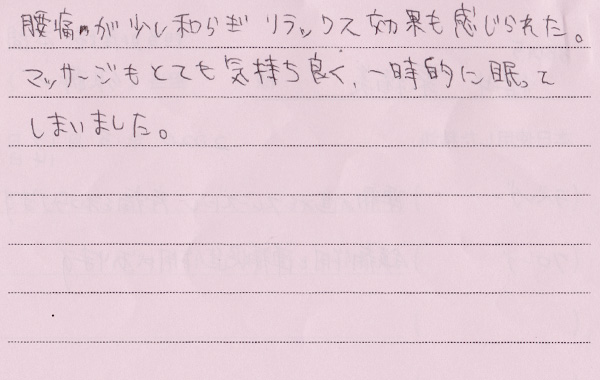 腰痛が少し和らぎ リラックス効果も感じられた。
マッサージもとても気持ち良く、一時的に眠って
しまいました。